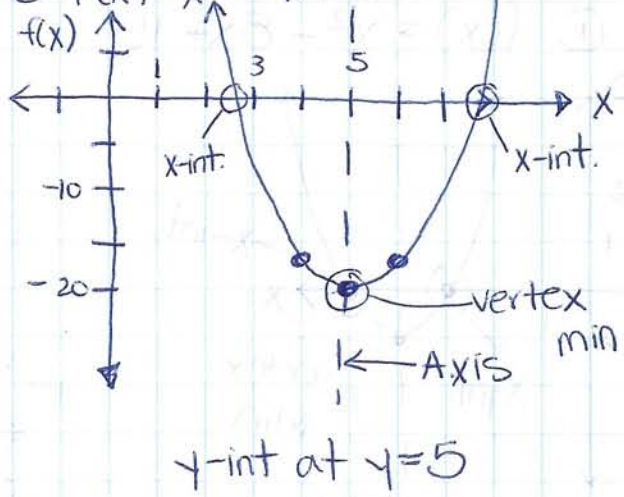 f(x)
1 3 5
X
x-int.
x-int.
-10
-20
vertex
min
Axis
y-int at y=5